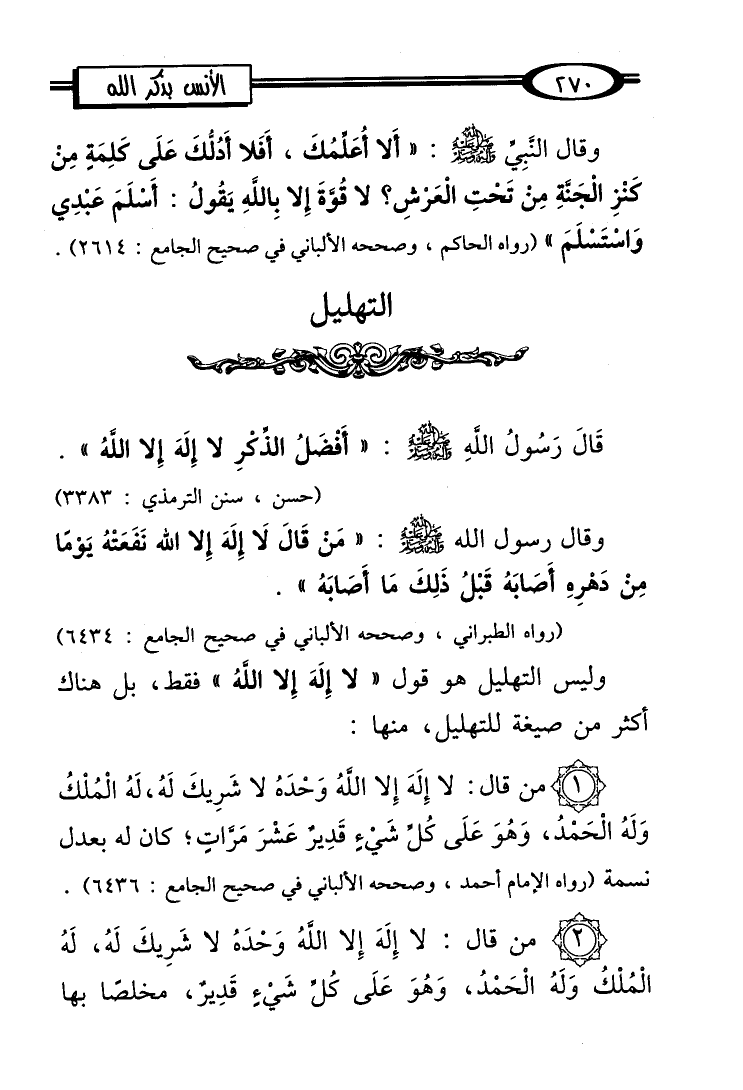 ٢٧٠
الأنس بذكر الله
وقال النَّبِيِّ ﷺ : « أَلا أُعَلِّمُكَ ، أَفَلا أَدُلُّكَ عَلَى كَلِمَةٍ مِنْ
كَنْزِ الْجَنَّةِ مِنْ تَحْتِ الْعَرْشِ؟ لا قُوَّةَ إِلا بِاللَّهِ يَقُولُ : أَسْلَمَ عَبْدِي
وَاسْتَسْلَمَ » (رواه الحاكم ، وصححه الألباني في صحيح الجامع : ٢٦١٤) .
التهليل
قَالَ رَسُولُ اللَّهِ ﷺ : « أَفْضَلُ الذِّكْرِ لا إِلَهَ إِلا اللَّهُ » .
(حسن ، سنن الترمذي : ٣٣٨٣)
وقال رسول الله ﷺ : « مَنْ قَالَ لَا إِلَهَ إِلا الله نَفَعَتْهُ يَوْمًا
مِنْ دَهْرِهِ أَصَابَهُ قَبْلُ ذَلِكَ مَا أَصَابَهُ » .
(رواه الطبراني ، وصححه الألباني في صحيح الجامع : ٦٤٣٤)
وليس التهليل هو قول « لا إِلَهَ إِلا اللَّهُ » فقط، بل هناك
أكثر من صيغة للتهليل، منها :
١ من قال: لا إِلَهَ إِلا اللَّهُ وَحْدَهُ لا شَرِيكَ لَهُ، لَهُ الْمُلْكُ
وَلَهُ الْحَمْدُ، وَهُوَ عَلَى كُلِّ شَيْءٍ قَدِيرٌ عَشْرَ مَرَّاتٍ؛ كان له بعدل
نسمة (رواه الإمام أحمد ، وصححه الألباني في صحيح الجامع : ٦٤٣٦) .
٢ من قال : لا إِلَهَ إِلا اللَّهُ وَحْدَهُ لا شَرِيكَ لَهُ، لَهُ
الْمُلْكُ وَلَهُ الْحَمْدُ، وَهُوَ عَلَى كُلِّ شَيْءٍ قَدِيرٌ، مخلصًا بها